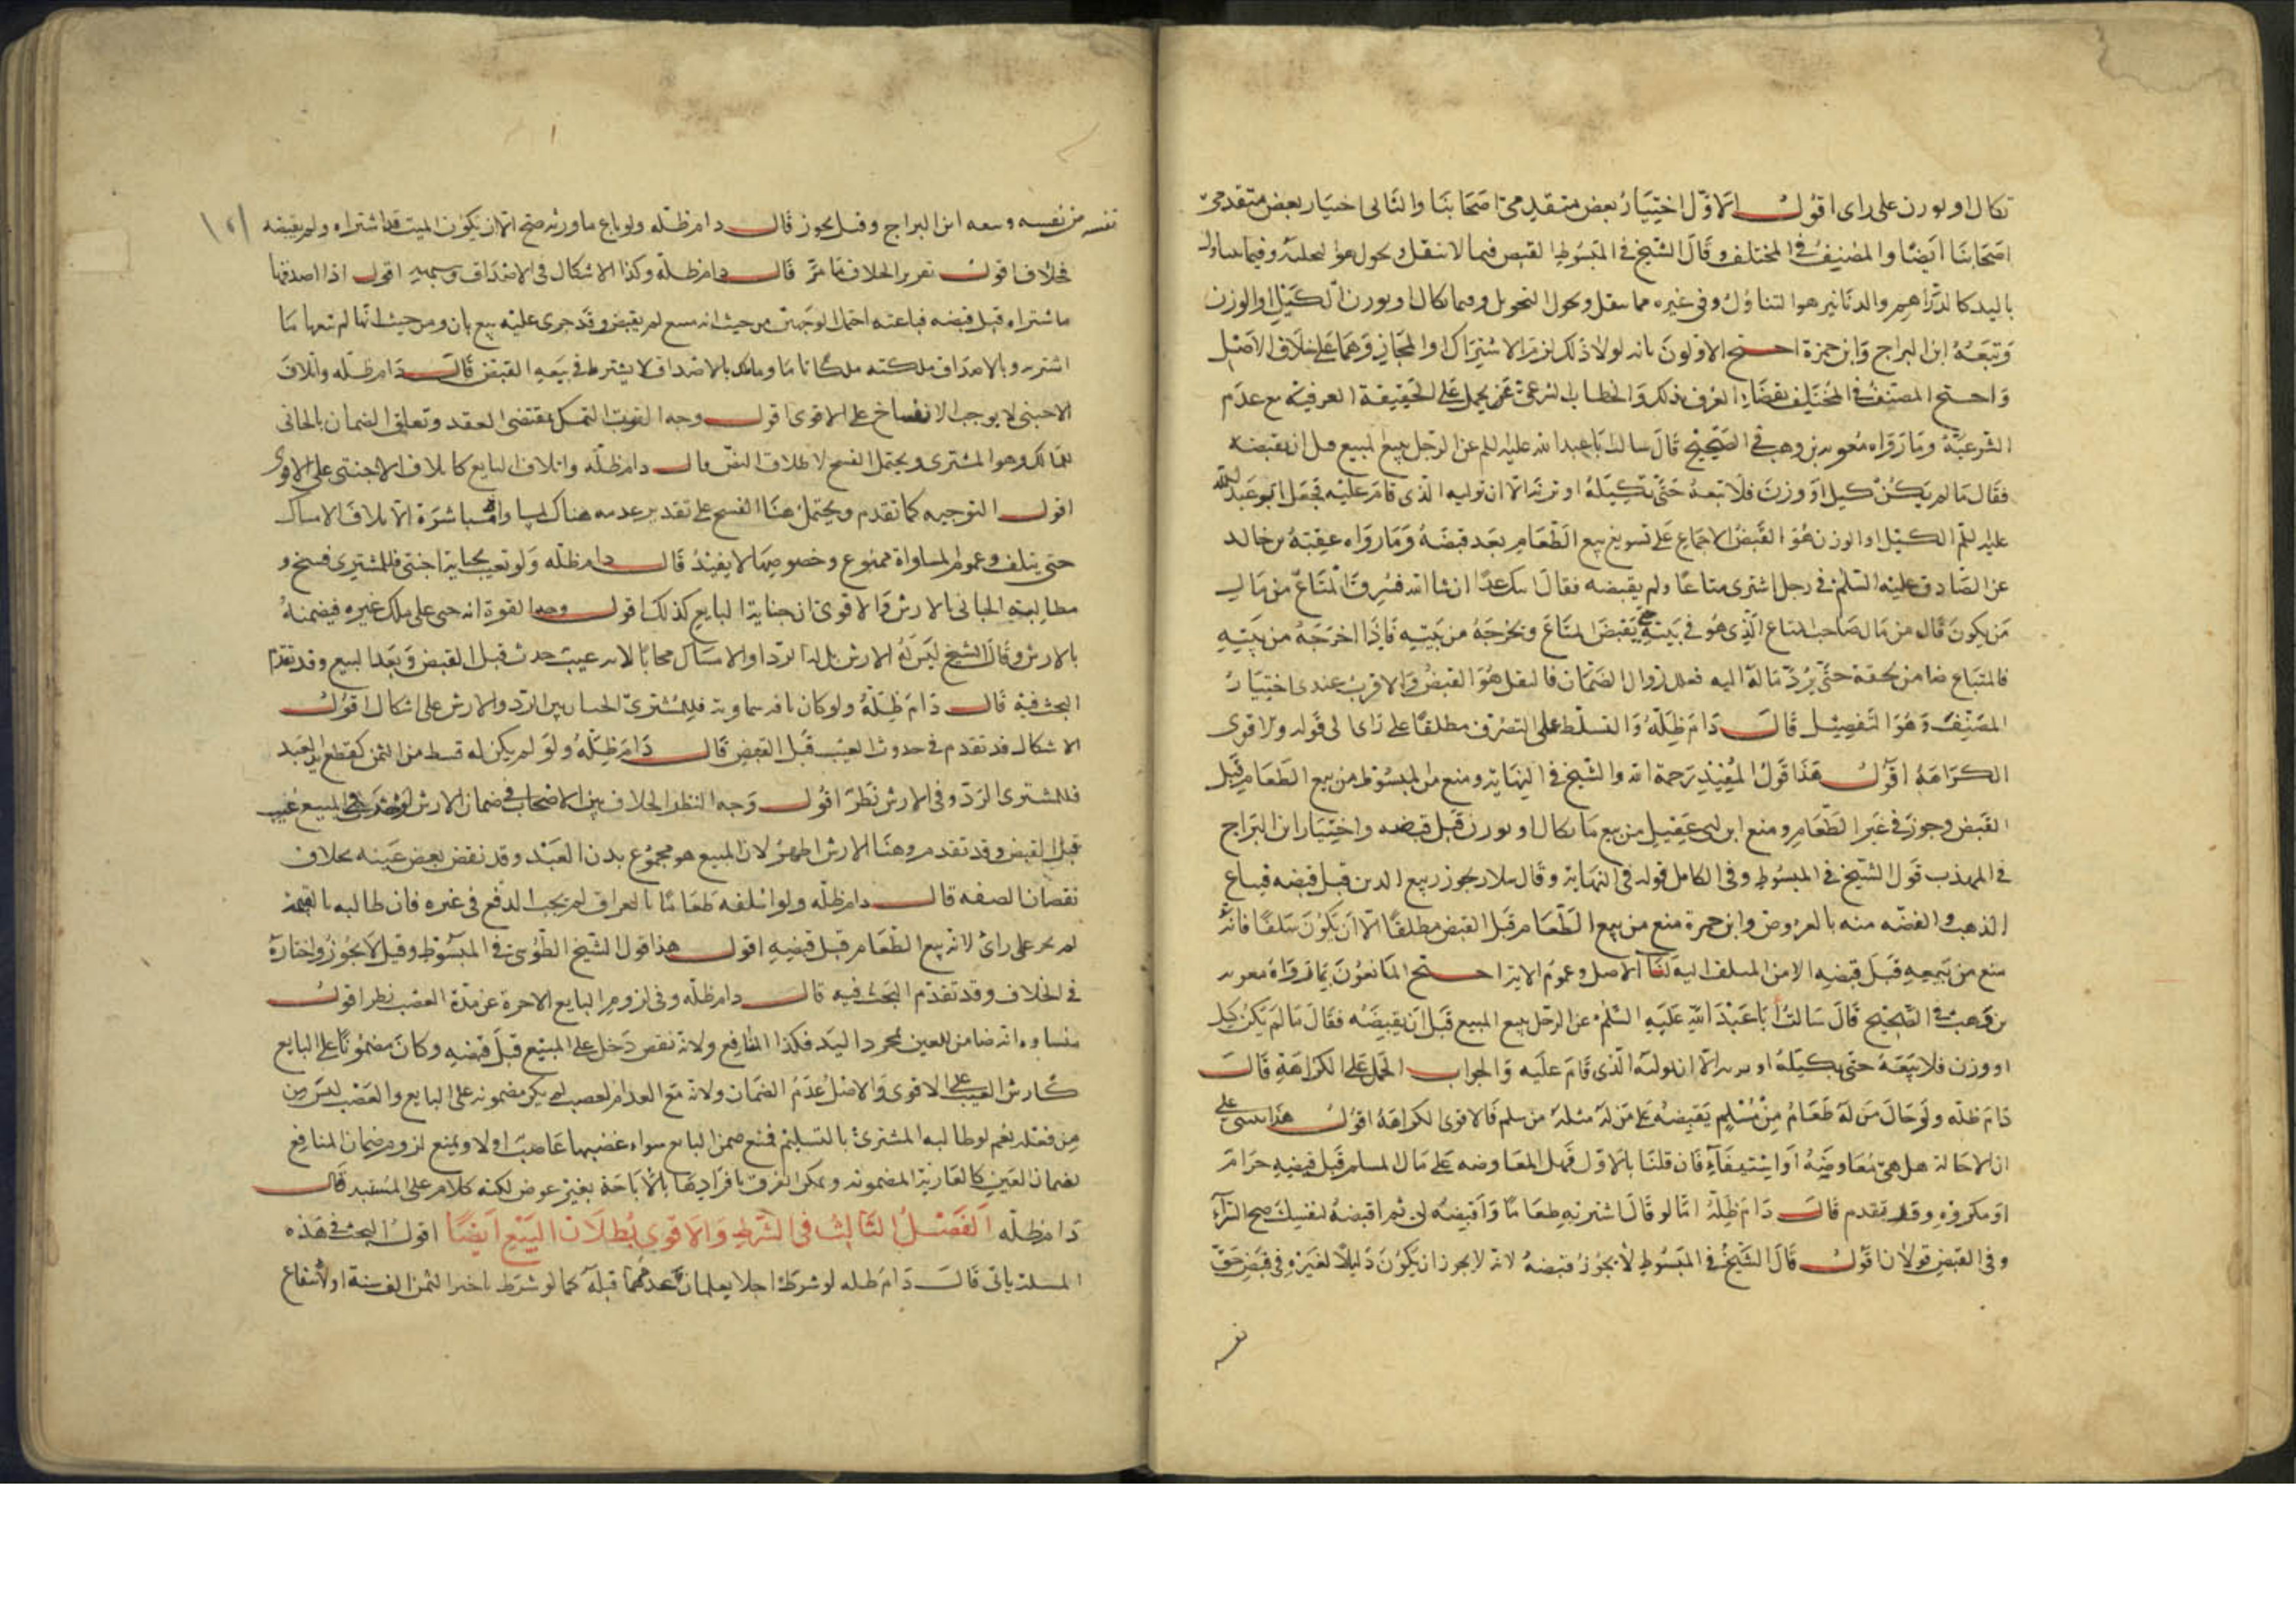 تكال او توزن على راى اقول الاول اختيار بعض متقدمى اصحابنا والثانى اختيار بعض متقدمى
اصحابنا ايضا والمصنف فى المختلف وقال الشيخ فى المبسوط القبض فيما لا ينقل ويحول هو التخلية وفيما يتناول
باليد كالدراهم والدنانير هو التناول وفى غيره مما ينقل ويحول التحويل وفيما يكال او يوزن الكيل او الوزن
وتبعه ابن البراج وابن حمزة احتج الاولون بانه لولا ذلك لزم الاشتراك او المجاز وهما على خلاف الاصل
واحتج المصنف فى المختلف بقضاء العرف بذلك والخطاب الشرعى يحمل على الحقيقة العرفية مع عدم
الشرعية وما رواه معوية بن وهب فى الصحيح قال سالت ابا عبد الله عليه السلم عن الرجل يبيع المبيع قبل ان يقبضه
فقال ما لم يكن كيل او وزن فلا تبعه حتى تكيله او تزنه الا ان توليه الذى قام عليه فجعل ابو عبد الله
عليه السلم الكيل او الوزن هو القبض للاجماع على تسويغ بيع الطعام بعد قبضه وما رواه عقبة بن خالد
عن الصادق عليه السلم فى رجل اشترى متاعا ولم يقبضه فقال اتيك غدا ان شا الله فسرق المتاع من مال
من يكون قال من مال صاحب المتاع الذى هو فى بيته حتى يقبض المتاع ويخرجه من بيته فاذا اخرجه من بيته
فالمتباع ضامن لحقه حتى يرد ماله اليه فعلل زوال الضمان فالنقل هو القبض والاقرب عندى اختيار
المصنف وهو التفصيل قال دام ظله والتسلط على التصرف مطلقا على راى الى قوله والاقوى
الكراهة اقول هذا قول المفيد رحمة الله والشيخ فى النهاية ومنع من المبسوط من بيع الطعام قبل
القبض وجوز فى غير الطعام ومنع ابن ابى عقيل من بيع ما يكال او يوزن قبل قبضه واختيار ابن البراج
فى المهذب قول الشيخ فى المبسوط وفى الكامل قوله فى النهاية وقال سلار يجوز بيع الدين قبل قبضه فيباع
الذهب والفضه منه بالعروض وابن حمزة منع من بيع الطعام قبل القبض مطلقا الا ان يكون سلفا فانه
منع من بيعه قبل قبضه الا من المسلف اليه لنا الاصل وعموم الاية احتج المانعون بما رواه معوية
بن وهب فى الصحيح قال سالت ابا عبد الله عليه السلم عن الرجل يبيع المبيع قبل ان يقبضه فقال ما لم يكن كيل
او وزن فلا تبعه حتى يكيله او يزنه الا ان يوليه الذى قام عليه والجواب الحمل على الكراهة قال
دام ظله ولو حال من له طعام من سلم بقبضه على من له مثله من سلم فالاقوى الكراهة اقول هذا يبتنى على
ان الاحالة هل هى معاوضة او استيفاء فان قلنا بالاول فهل المعاوضه على مال المسلم قبل قبضه حرام
او مكروه وقد تقدم قال دام ظله اما لو قال اشتر به طعاما واقبضه لى ثم اقبضه لنفسك صح الشراء
وفى القبض قولان اقول قال الشيخ فى المبسوط لا يجوز قبضه لانه لا يجوز ان يكون وكيلا لغيره فى قبض حق
نفسه
نفسه من نفسه وتبعه ابن البراج وقيل يجوز قال دام ظله ولو باع ما ورثه صح الا ان يكون الميت قد اشتراه ولم يقبضه
فخلاف اقول تقرير الخلاف ما مر قال دام ظله وكذا الاشكال فى الاصداق وشبهه اقول اذا اصدقها
ما اشتراه قبل قبضه فباعته احتمل الوجهين من حيث انه مبيع لم يقبض وقد جرى عليه بيع ثان ومن حيث انها لم تبع ما
اشترته وبالاصداق ملكته ملكا تاما وما ملك بالاصداق لا يشترط فى بيعه القبض قال دام ظله واتلاف
الاجنبى لا يوجب الانفساخ على الاقوى اقول وجه القوة التمسك بمقتضى العقد وتعلق الضمان بالجانى
للمالك وهو المشترى ويحتمل الفسخ لاطلاق النص قال دام ظله واتلاف البايع كاتلاف الاجنبى على الاقوى
اقول التوجيه كما تقدم ويحتمل هنا الفسخ على تقدير عدمه هناك لمساواة مباشرة الاتلاف الامساك
حتى يتلف وعموم المساواة ممنوع وخصوصها لا يفيد قال دام ظله ولو تعيب بجناية اجنبى فللمشترى فسخ و
مطالبة الجانى بالارش والاقوى ان جناية البايع كذلك اقول وجه القوة انه جنى على ملك غيره فيضمنه
بالارش وقال الشيخ ليس له الارش بل له الرد او الامساك مجانا لانه عيب حدث قبل القبض وبعد البيع وقد تقدم
البحث فيه قال دام ظله ولو كان بافة سماوية فللمشترى الخيار بين الرد والارش على اشكال اقول
الاشكال قد تقدم فى حدوث العيب قبل القبض قال دام ظله ولو لم يكن له قسط من الثمن كقطع يد العبد
فللمشترى الرد وفى الارش نظر اقول وجه النظر الخلاف بين الاصحاب فى ضمان الارش لو حدث فى المبيع عيب
قبل القبض وقد تقدم وهنا الارش اظهر لان المبيع هو مجموع بدن العبد وقد نقص بعض عينه بخلاف
نقصان الصفه قال دام ظله ولو اسلفه طعاما بالعراق لم يجب الدفع فى غيره فان طالبه بالقيمة
لم يجز على راى لانه بيع الطعام قبل قبضه اقول هذا قول الشيخ الطوسى فى المبسوط وقيل لا يجوز واختاره
فى الخلاف وقد تقدم البحث فيه قال دام ظله وفى لزوم البايع الاجرة عن مدة الغصب نظر اقول
منشاوه انه ضامن للعين بمجرد اليد فكذا المنافع ولانه نقص دخل على المبيع قبل قبضه وكان مضمونا على البايع
كارش العيب على الاقوى والاصل عدم الضمان ولانه مع انعدام الغصب لم يكن مضمونه على البايع والغصب ليس من
من فعله نعم لو طالبه المشترى بالتسليم فمنع ضمن البايع سواء غصبها غاصب اولا ويمنع لزوم ضمان المنافع
لضمان العين كالعارية المضمونه ويمكن الفرق بافرادها بالاباحة بغير عوض لكنه كلام على المستند قال
دام ظله الفصل الثالث فى الشرط والاقوى بطلان البيع ايضا اقول البحث فى هذه
المسلة ياتى قال دام ظله لو شرط اجلا يعلمان عدمهما قبله كما لو شرط تاخير الثمن الف سنة او الانتفاع